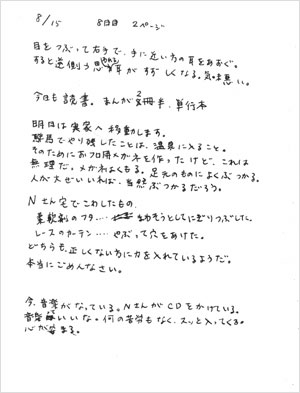 8/15 8日目 2ページ
目をつぶって右手で、手に近い方の耳をあおぐ。
すると逆側と思われる耳がすずしくなる。気味悪い。
今日も読書。まんが2冊半、単行本
明日は実家へ移動します。
群馬でやり残したことは、温泉に入ること。
そのためにお フロ用メガネを作ったけど、これは
無理だ。メガネはくもる。足元のものによくぶつかる。
人が大ぜいいれば、当然ぶつかるだろう。
Nさん宅でこわしたもの。
柔軟剤のフタ…をあけようとしてにぎりつぶした。
レースのカーテン…やぶって穴をあけた。
どちらも、正しくない方に力を入れているようだ。
本当にごめんなさい。
今、音楽がなっている。NさんがCDをかけている。
音楽はいいな。何の苦労もなく、スッと入ってくる。
心が安まる。